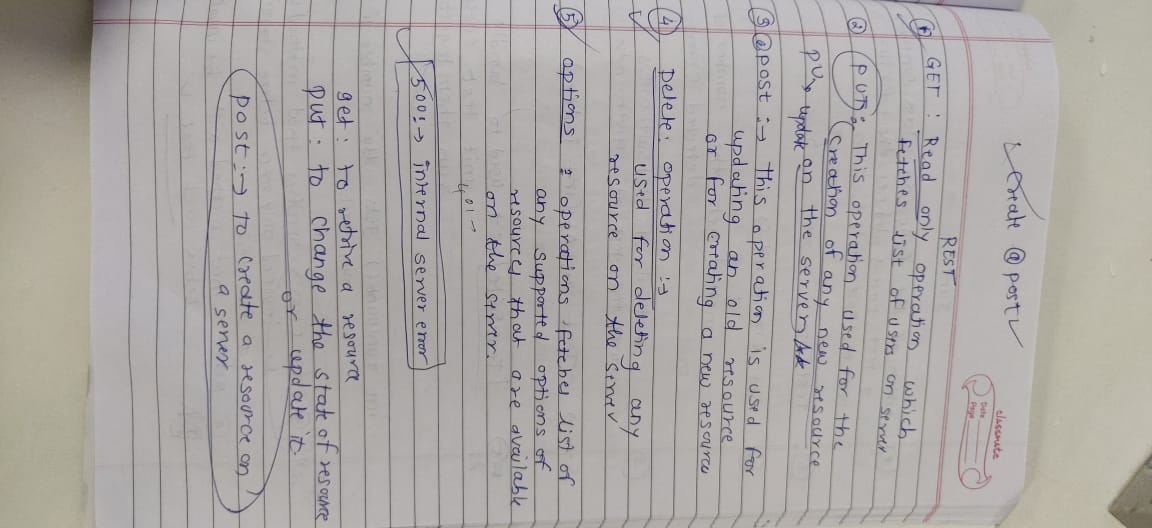 create @ post
classmate
Date
Page
REST
① GET : Read only operation which
fetches list of users on server
② PUT : This operation used for the
creation of any new resource
PU update on the server
③ @post :→ this operation is used for
updating an old resource
or for creating a new resource
④ Delete: operation :→
used for deleting any
resource on the server
⑤ options : operations fetches list of
any supported options of
resources that are available
on the server.
401 -
500 :→ internal server error
get : to retrive a resource
put : to change the state of resource
or update it
post :→ to create a resource on
a server